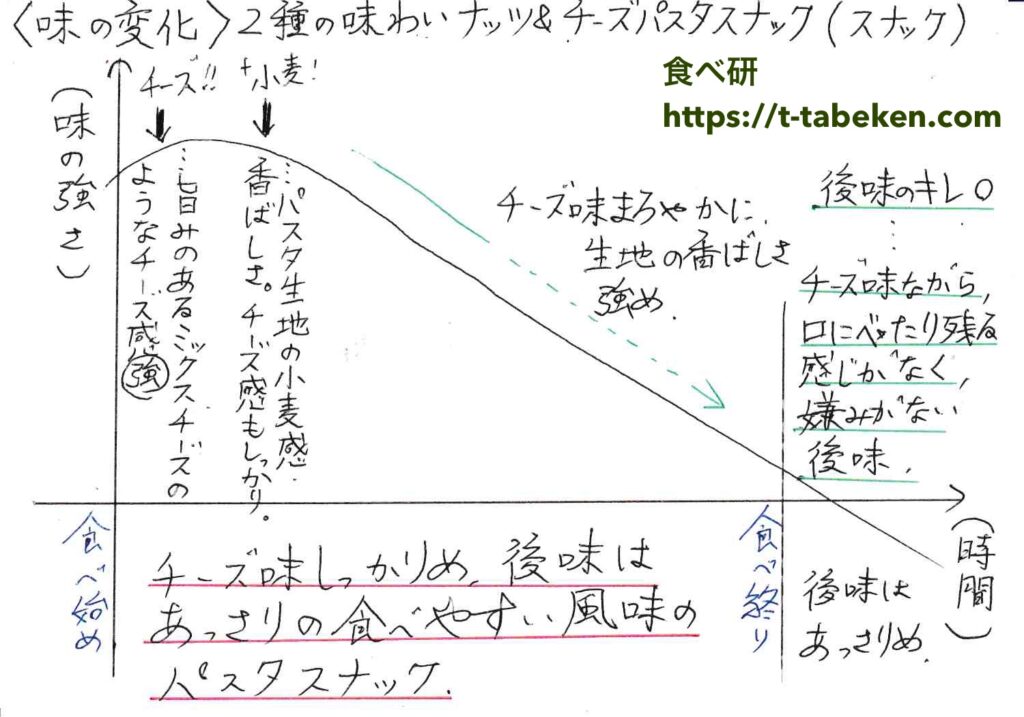 〈味の変化〉2種の味わいナッツ&チーズパスタスナック(スナック)
食べ研
https://t-tabeken.com
(味の強さ)
チーズ!!
…旨みのあるミックスチーズの
ようなチーズ感強
+小麦!
…パスタ生地の小麦感.
香ばしさ。チーズ感もしっかり。
チーズ味まろやかに、
生地の香ばしさ
強め.
後味のキレ〇
チーズ味ながら,
口にべったり残る
感じがなく,
嫌みがない
後味.
食べ始め
食べ終り
(時間)
後味は
あっさりめ.
チーズ味しっかりめ、後味は
あっさりの食べやすい風味の
パスタスナック.